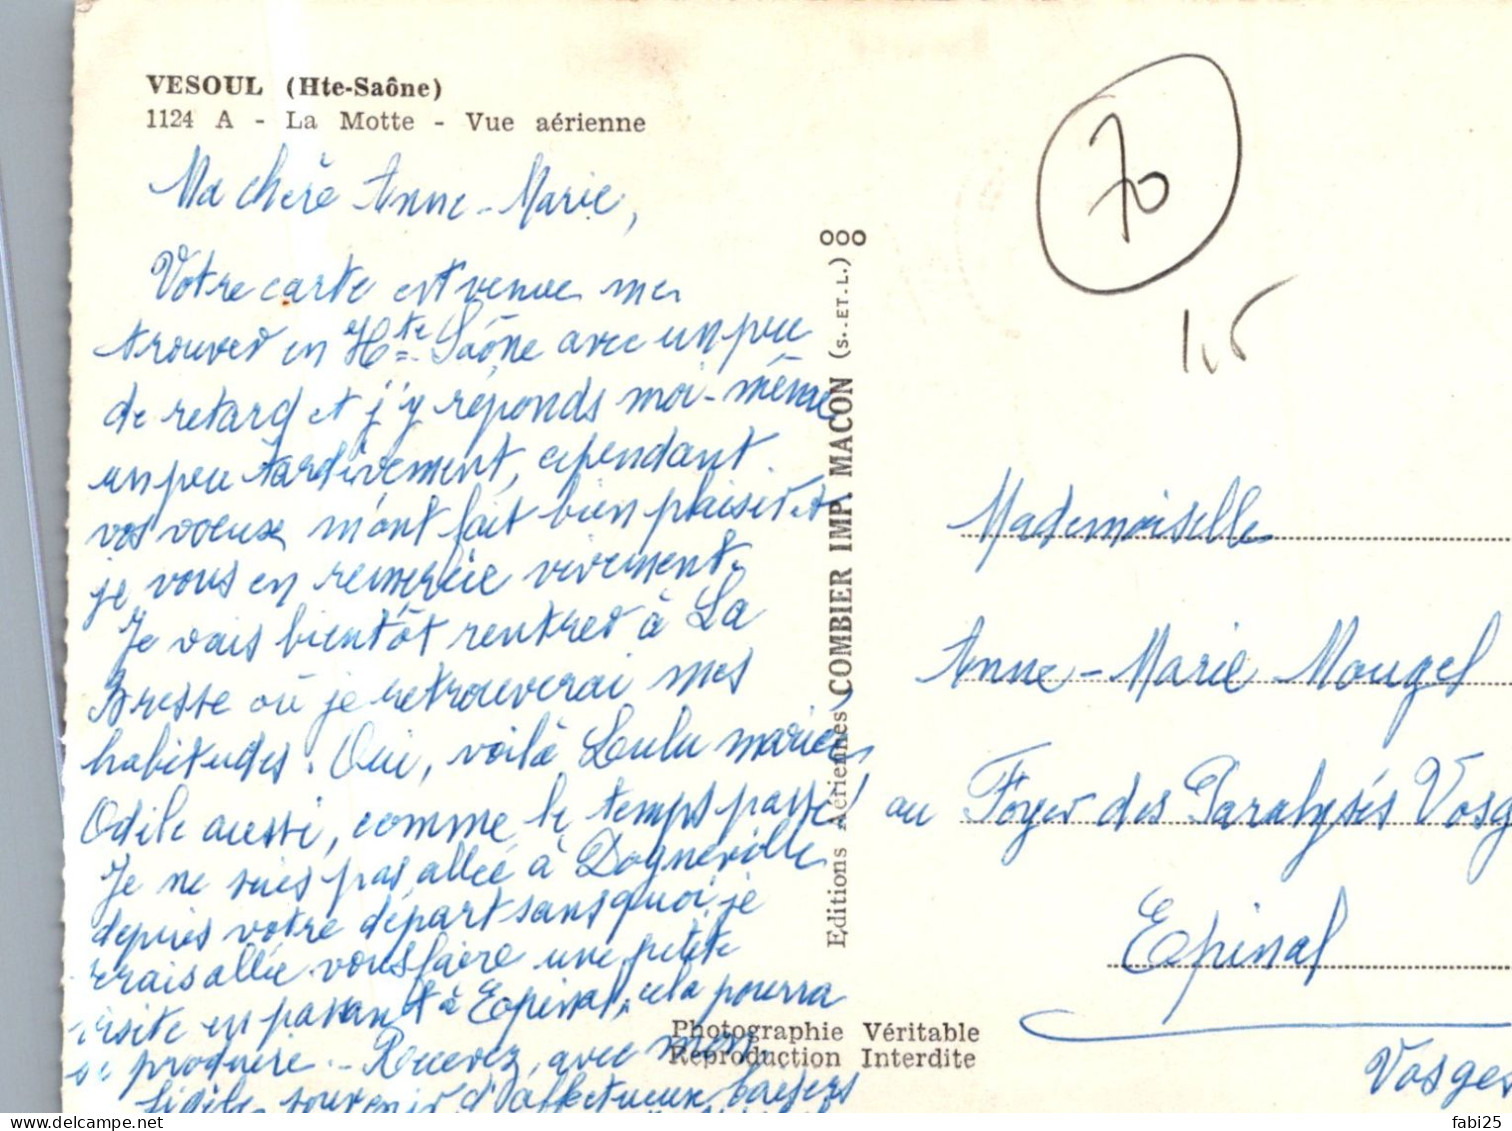 VESOUL (Hte-Saône)
1124 A - La Motte - Vue aérienne
Ma chère Anne-Marie,
Votre carte est venue me
trouver en Hte Saône avec un peu
de retard et j'y réponds moi-même
un peu tardivement, cependant
vos voeux m'ont fait bien plaisir et
je vous en remercie vivement.
Je vais bientôt rentrer à La
Bresse où je retrouverai mes
habitudes. Oui, voilà Lulu mariée
Odile aussi, comme le temps passe!
Je ne suis pas allée à Dogneville
depuis votre départ sans quoi je
serais allée vous faire une petite
visite en passant à Epinal, cela pourra
se produire.- Recevez, avec mon
fidèle souvenir d'affectueux baisers
Editions Aériennes COMBIER IMP. MACON (S.-ET-L.)
Photographie Véritable
Reproduction Interdite
70
1,5
Mademoiselle
Anne-Marie Mougel
au Foyer des Paralysés Vosg
Epinal
Vosges
fabi25